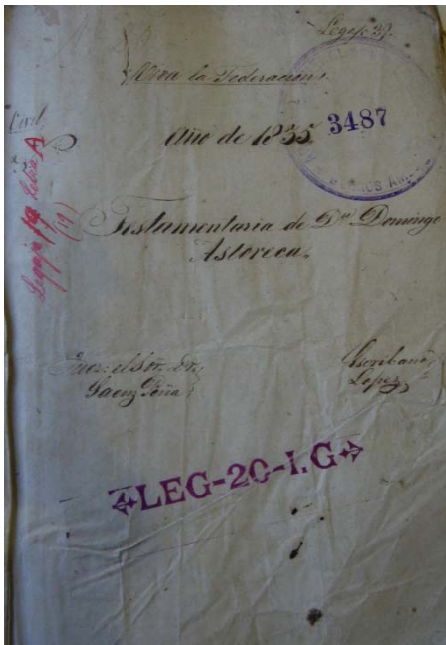 Legajo 39.
Viva la Federacion,
Civil
Año de 1835
3487
BUENOS AIRES
Legajo 19 Letra A
(19)
Testamentaria de Dn Domingo
Astoreca.
Juez: el Sor. Dr.
Saenz Peña
Escribano
Lopez
LEG-20-I.G